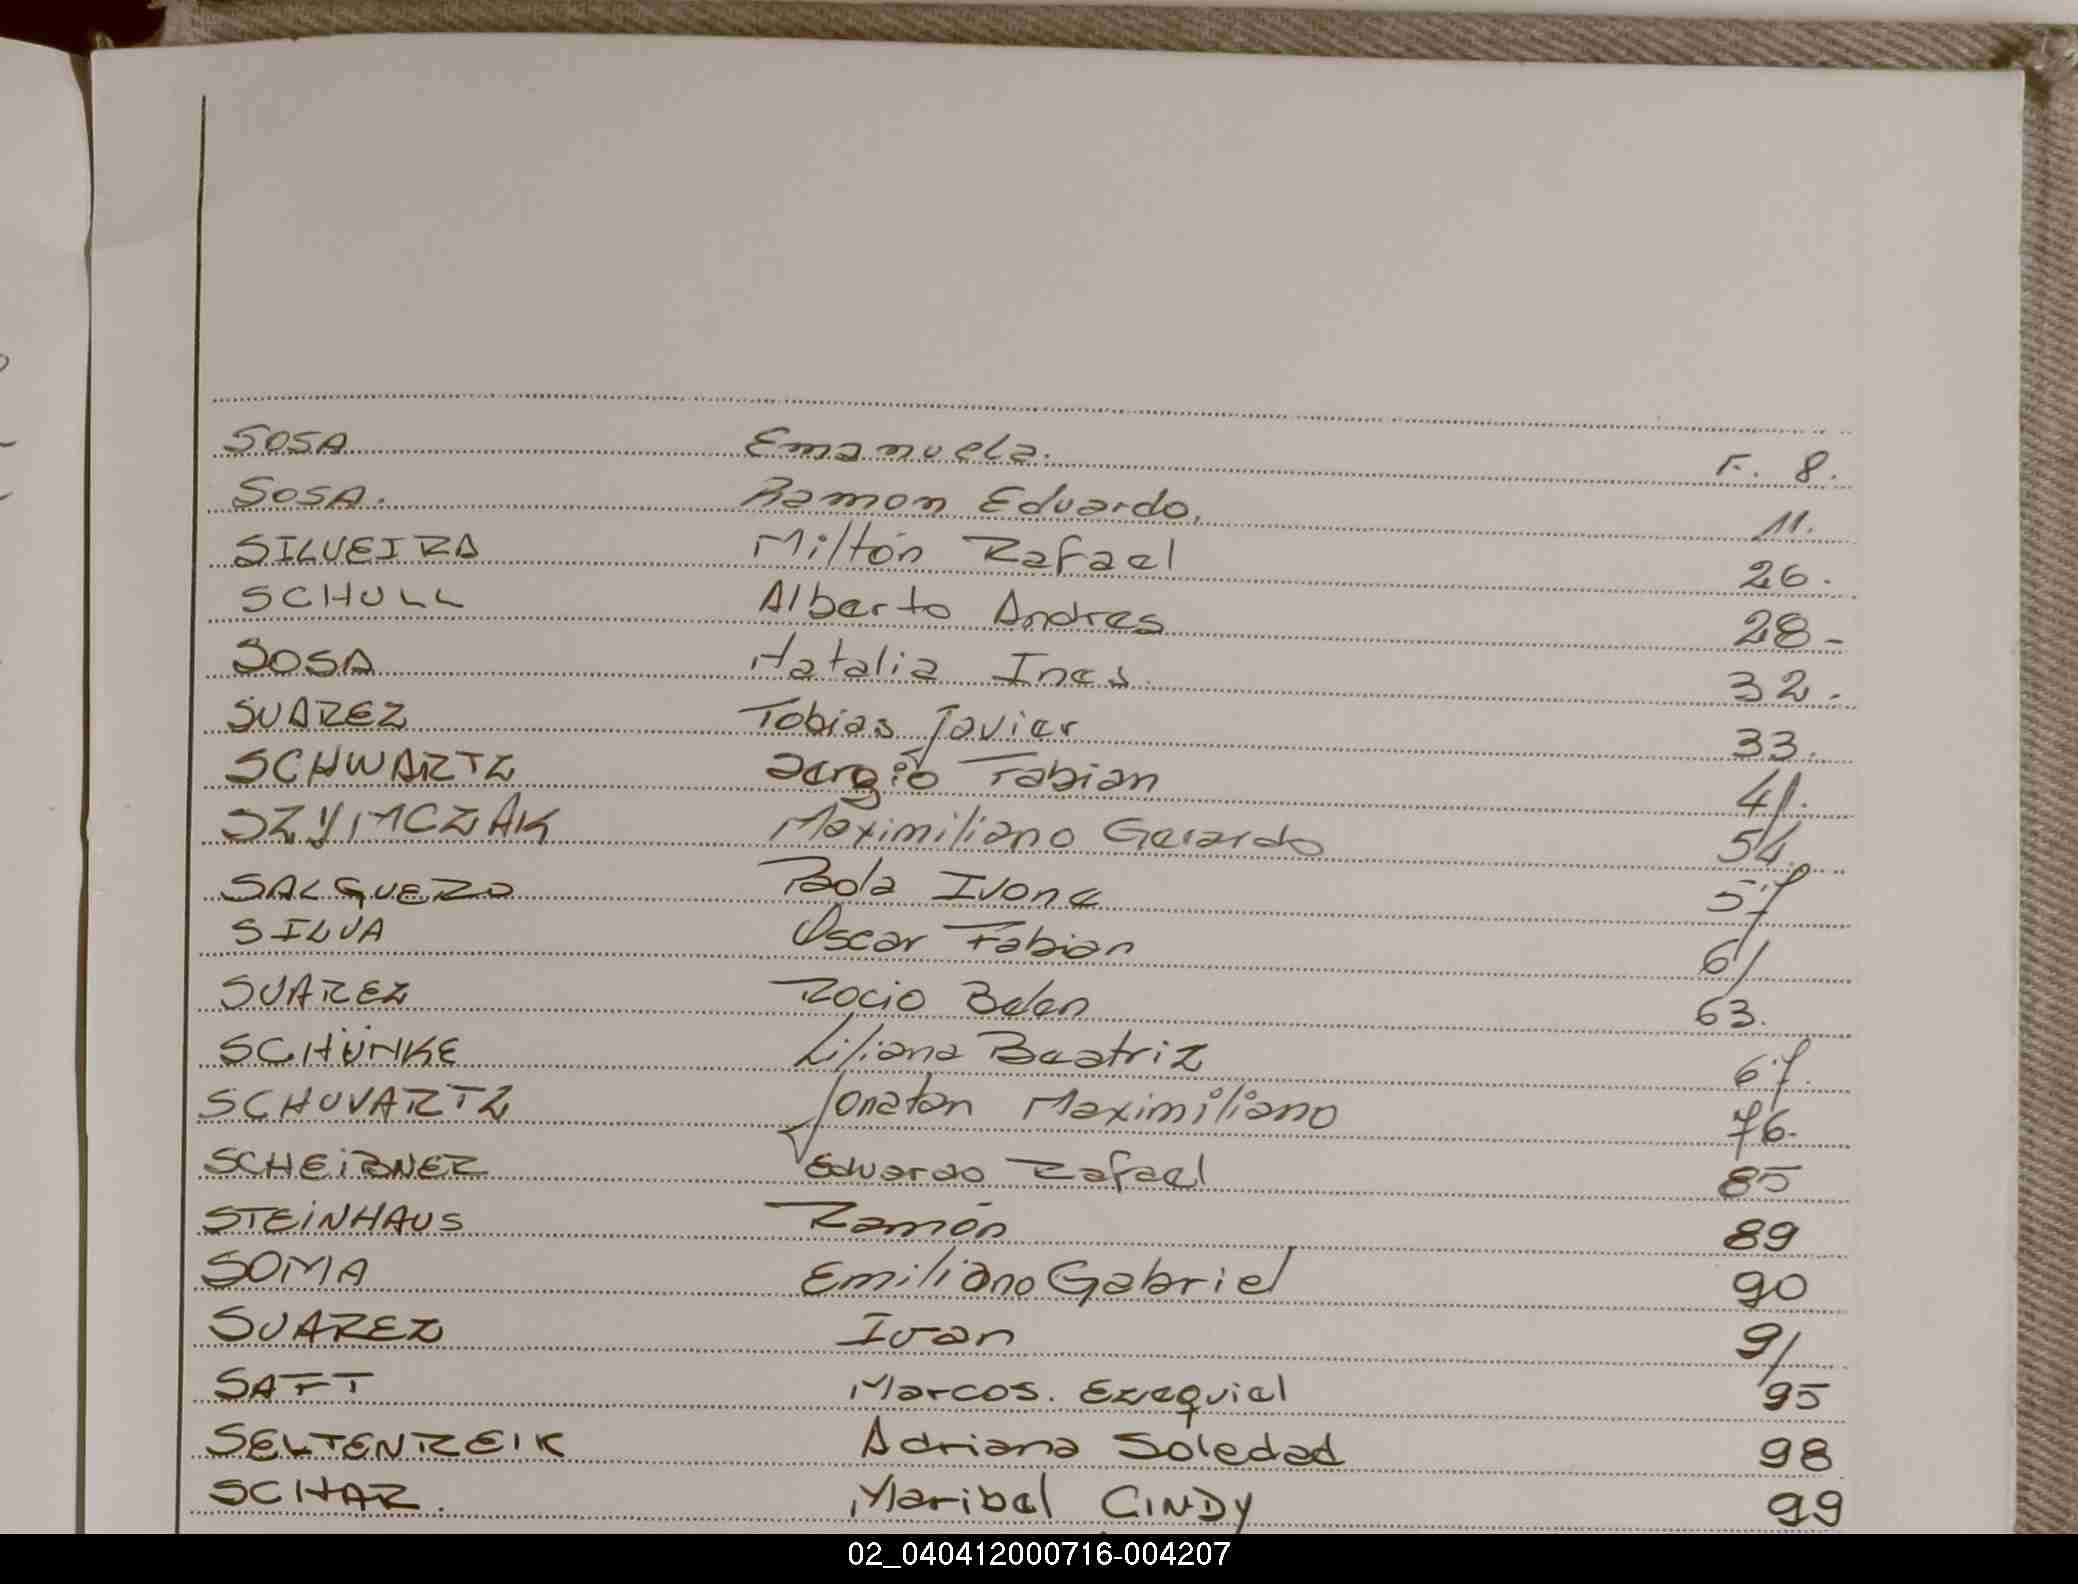 SOSA Emanuela. F. 8.
SOSA. Ramon Eduardo. 11.
SILVEIRA Miltón Rafael 26.
SCHULL Alberto Andres 28-
SOSA Natalia Ines. 32.
SUAREZ Tobias Javier 33.
SCHWARTZ Sergio Fabian 41.
SZYMCZAK Maximiliano Gerardo 54.
SALGUERO Paola Ivone 57
SILVA Oscar Fabian 61
SUAREZ Rocio Belen 63.
SCHÜNKE Liliana Beatriz 67.
SCHUVARTZ Jonatan Maximiliano 76.
SCHEIBNER Eduardo Rafael 85
STEINHAUS Ramón 89
SOMA Emiliano Gabriel 90
SUAREZ Ivan 91
SAFT Marcos. Ezequiel 95
SELTENREIK Adriana Soledad 98
SCHAR. Maribel CINDY 99
02_040412000716-004207